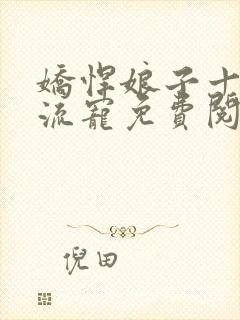 嬌悍娘子十
流寵免費閱
倪田